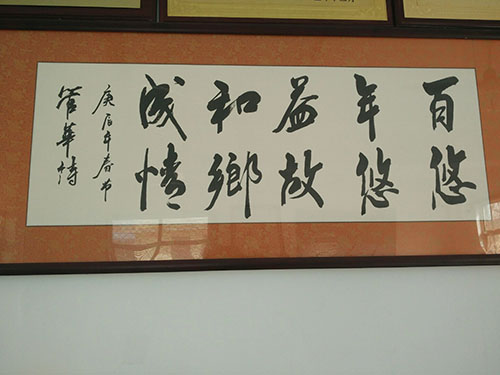 百年益和成
悠悠故鄉情
庚辰年春节
管華诗